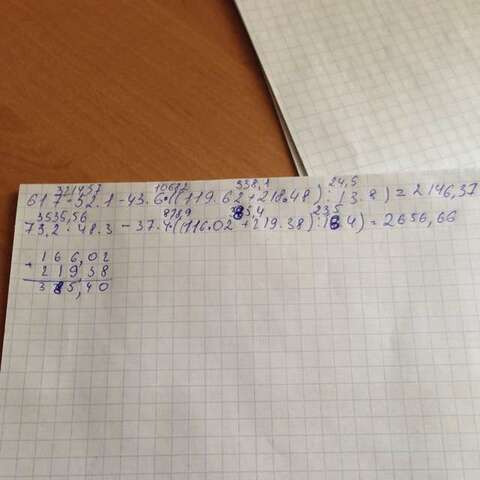 3214,57 1068,2 338,1 24,5
61 7 · 52.1 - 43.6·((119.62+218.48) : 13.8) = 2146,37
3535,56 878,9 385,4 23,5
73,2 · 48.3 - 37.4·(116.02+219.38) : 4) = 2656,66
+ 166,02
219,38
385,40